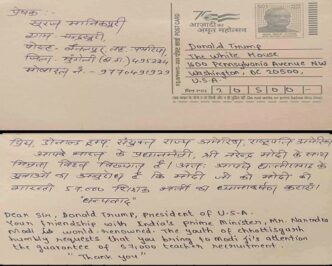 प्रेषक:
सूरज मानिकपुरी
ग्राम
पोस्ट
जिला मुंगेली (छ.ग.) 495334
मोबाइल नं. -
POST CARD
75
आज़ादी का
अमृत महोत्सव
Donald Trump
The White House
1600 Pennsylvania Avenue NW
Washington, DC 20500,
U.S.A
2 0 5 0 0
प्रिय डोनाल्ड ट्रम्प, संयुक्त राज्य अमेरिका, राष्ट्रपति
आपके भारत के प्रधानमंत्री, श्री नरेन्द्र मोदी के साथ
मित्रता विश्व विख्यात है। अतः आपसे छत्तीसगढ़ के
युवाओं का अनुरोध है कि मोदी जी को मोदी की
गारंटी 57,000 शिक्षक भर्ती का ध्यानाकर्षण कराएँ।
"धन्यवाद"
Dear Sir, Donald Trump, President of U.S.A.
Your friendship with India's prime Minister, Mr. Narendra
Modi is world renowned. The youth of chhattisgarh
humbly requests that you bring to Modi ji's attention
the guarantee of 57,000 teacher recruitment.
"Thank you"